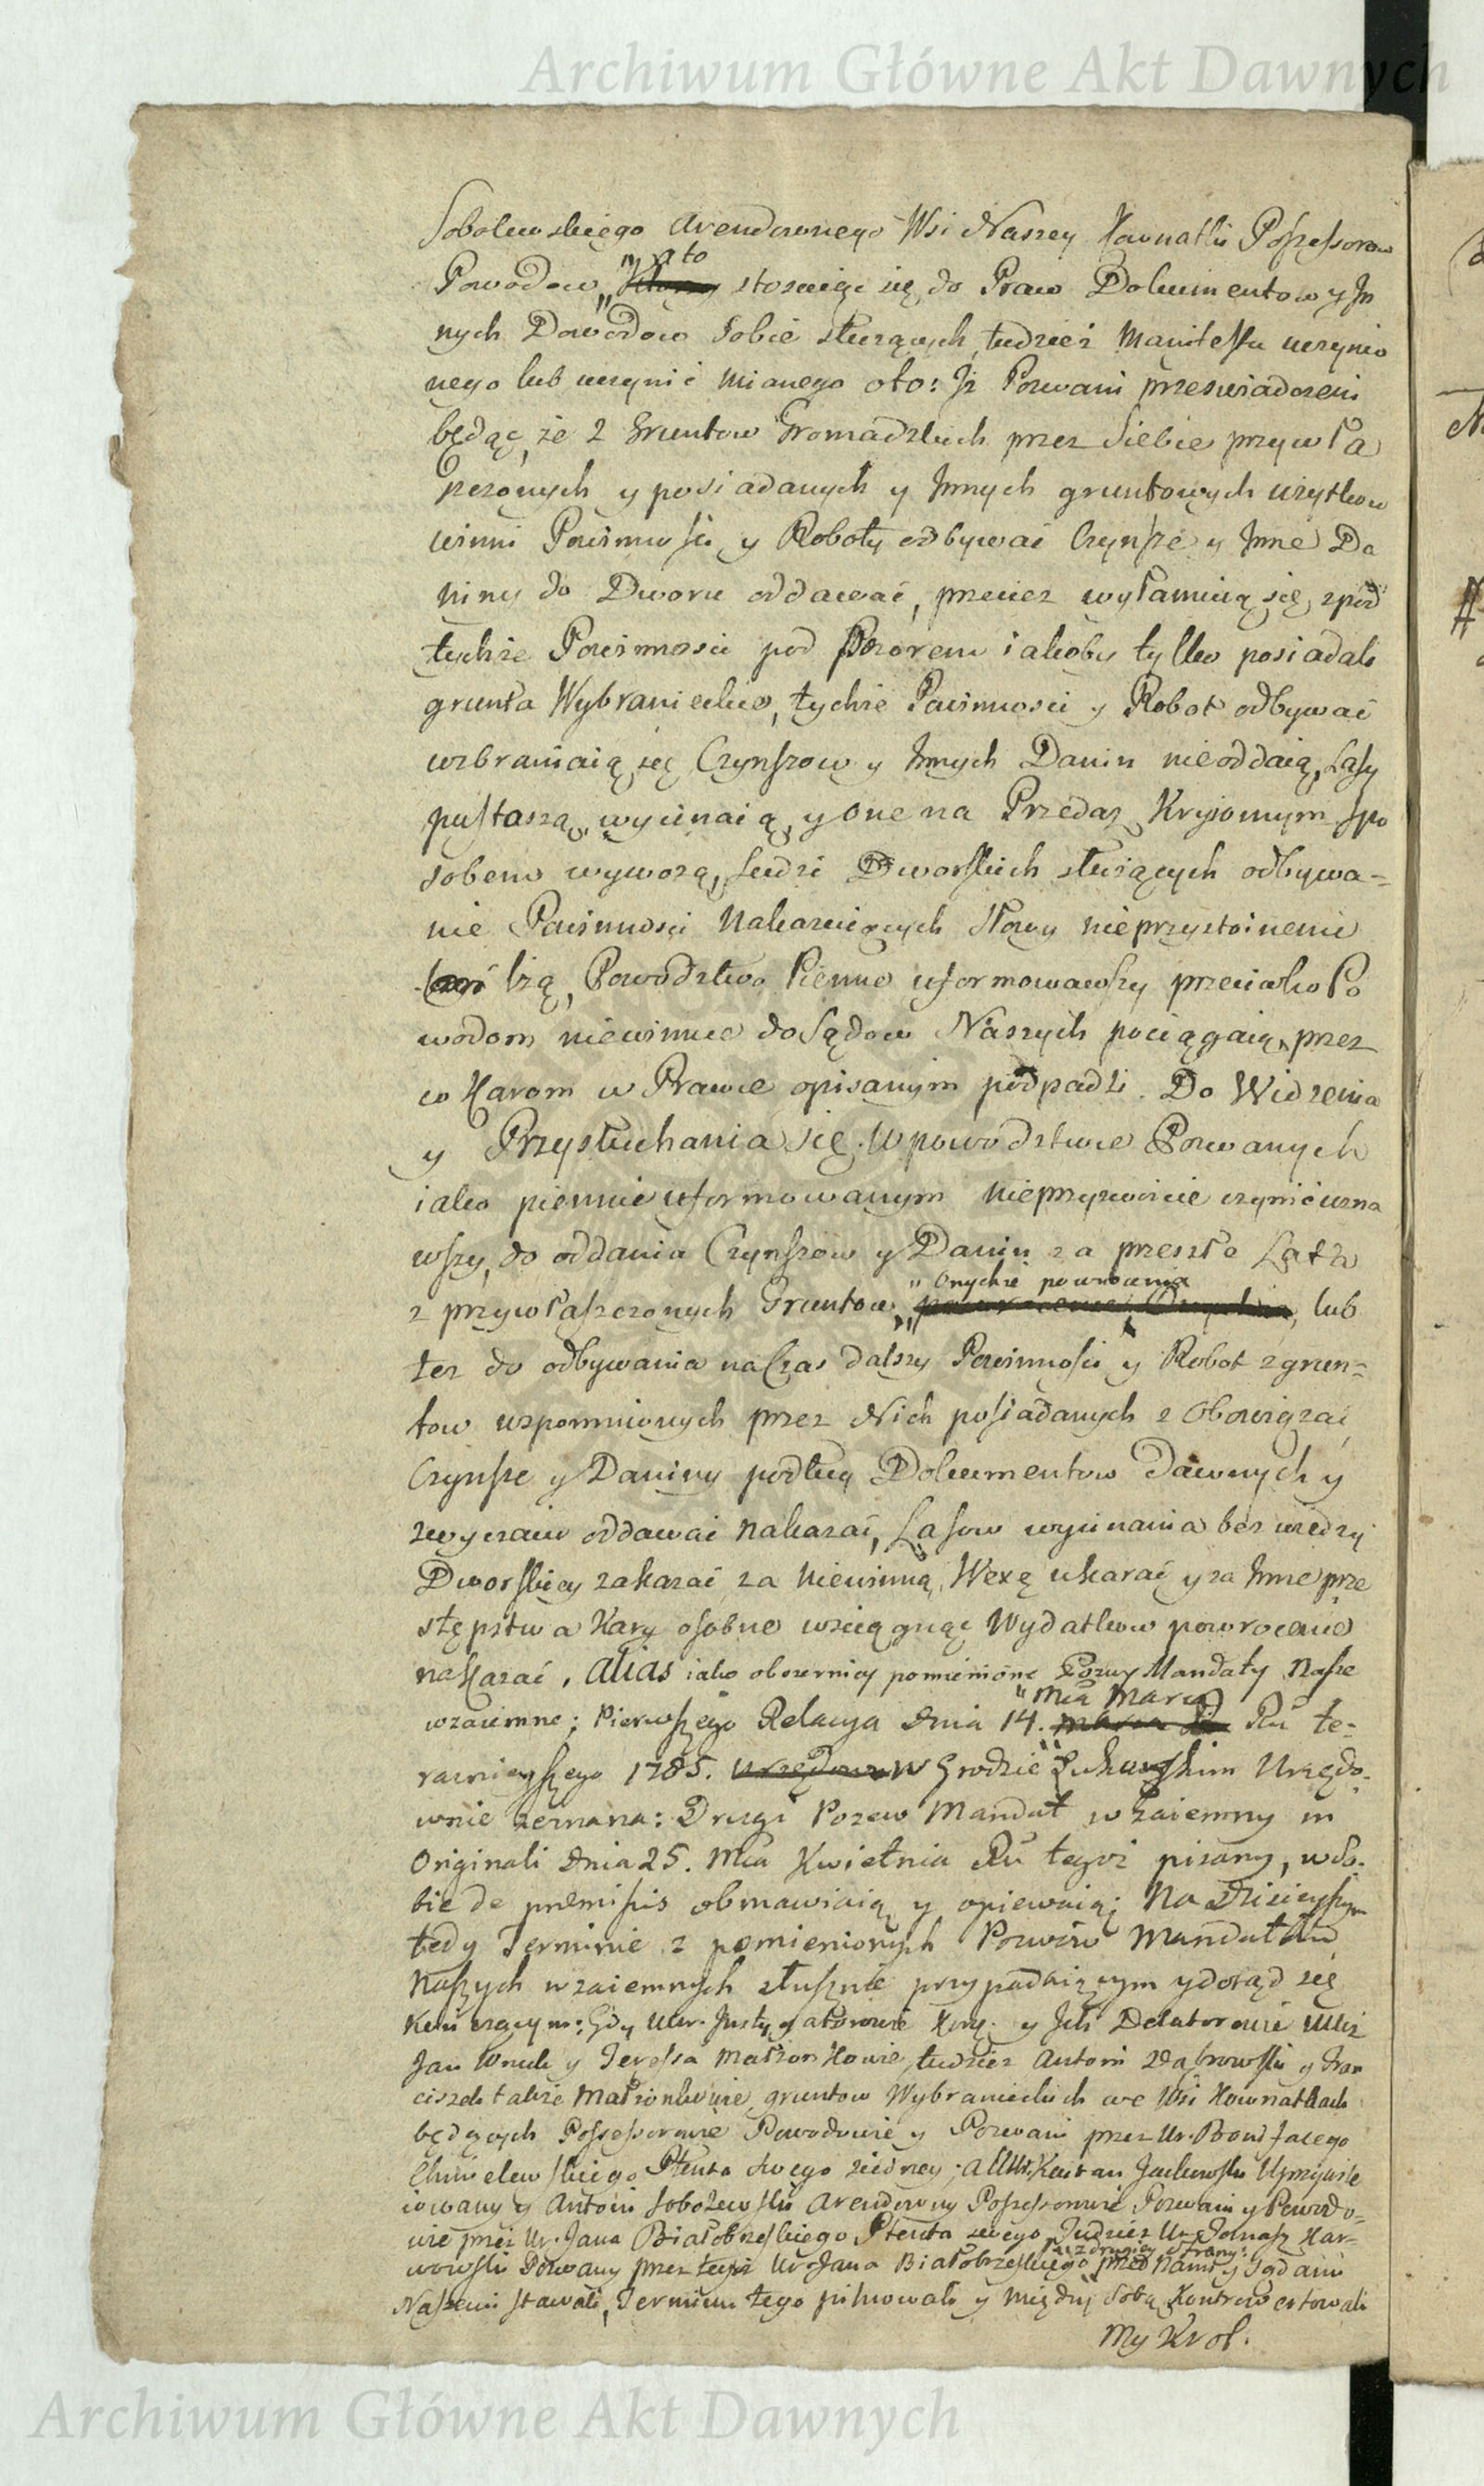 Archiwum Główne Akt Dawnych
Sobolewskiego Arendownego Wsi Naszey Kownatki Possessorow
Powodow „ a to stosuiąc się do Praw Dokumentow y In
nych Dowodow Sobie służących, tudzież Manifestu uczynio
nego lub uczynić mianego oto: Iż Pozwani przeswiadczeni
będąc, że z Gruntow Gromadzkich przez Siebie przywła
szczonych y posiadanych y Innych gruntowych użytkow
winni Powinnosci y Roboty odbywać Czynsze y Inne Da
niny do Dworu oddawać, przecież wyłamuią się z pod
tychże Powinnosci pod Pozorem iakoby tylko posiadali
grunta Wybranieckie, tychże Powinnosci y Robot odbywać
wzbraniaią się Czynszow y Innych Danin nieoddaią, Lasy
pustoszą, wycinaią, y one na Przedaz Kryiomym spo
sobem wywożą, Ludzi Dworskich służących odbywa=
nie Powinnosci Nakazuiących Słowy nieprzystoinemi
lżą, Powodztwo Pienne uformowawszy przeciwko Po
wodom niewinnie do Sądow Naszych pociągaią, przez
co Karom w Prawie opisanym podpadli. Do Widzenia
y Przysłuchania się. W powodztwie Pozwanych
iako piennie uformowanym nieprzyzwoicie czynić uzna
wszy, do oddania Czynszow y Danin za przeszłe Lata
„ Onychże powrocenia
z przywłaszczonych Gruntow, „ lub
też do odbywania na Czas dalszy Powinnosci y Robot z grun=
tow wspomnionych przez Nich posiadanych zobowiązać,
Czynsze y Daniny podług Dokumentow Dawnych y
zwyczaiu oddawać nakazać, Lasow wycinania bez wiedzy
Dworskiey zakazać za Niewinną Wexę ukarać y za Inne prze
stępstwa Kary osobne wsciągnąć Wydatkow powrocenie
nakazać, alias iako obszerniey pomienione Pozwy Mandaty Nasze
„ Mca Marca
wzaiemne; Pierwszego Relacya dnia 14. Ru te-
raznieyszego 1785. w Grodzie Łukowskim Urzędo-
wnie zeznana: Drugi Pozew Mandat wzaiemny in
Originali dnia 25. Mca Kwietnia Ru tegoż pisany, w So-
bie de premissis obmawiaią y opiewaią; Na Dzisieyszym
tedy Terminie z pomienionych Pozwow Mandatow
Naszych wzaiemnych słusznie przypadaiącym y dotąd się
kontynuiącym: Gdy Urr. Instygatorowie Kor. y Ich Delatorowie Uczi
Jan Wnuk y Teressa Małzonkowie, tudzież Antoni Dąbrowski y Fran
ciszek także Małżonkowie, gruntow Wybranieckich we Wsi Kownatkach
będących Possessorowie Powodowie y Pozwani przez Ur. Bonifacego
Chmielewskiego Plenta swego z iedney; a Uur. Kaietan Jackowski Uprzywile
iowany y Antoni Sobolewski Arendowny Possessorowie Pozwani y Powodo=
wie przez Ur. Jana Białobrzeskiego Plenta swego, Tudzież Ur. Kar-
z drugiey Strony
wowski Pozwany przez tegoż Ur. Jana Białobrzeskiego przed Nami y Sądami
Naszemi stawali, Terminu tego pilnowali y między Sobą Kontrowertowali
My Krol.
Archiwum Główne Akt Dawnych